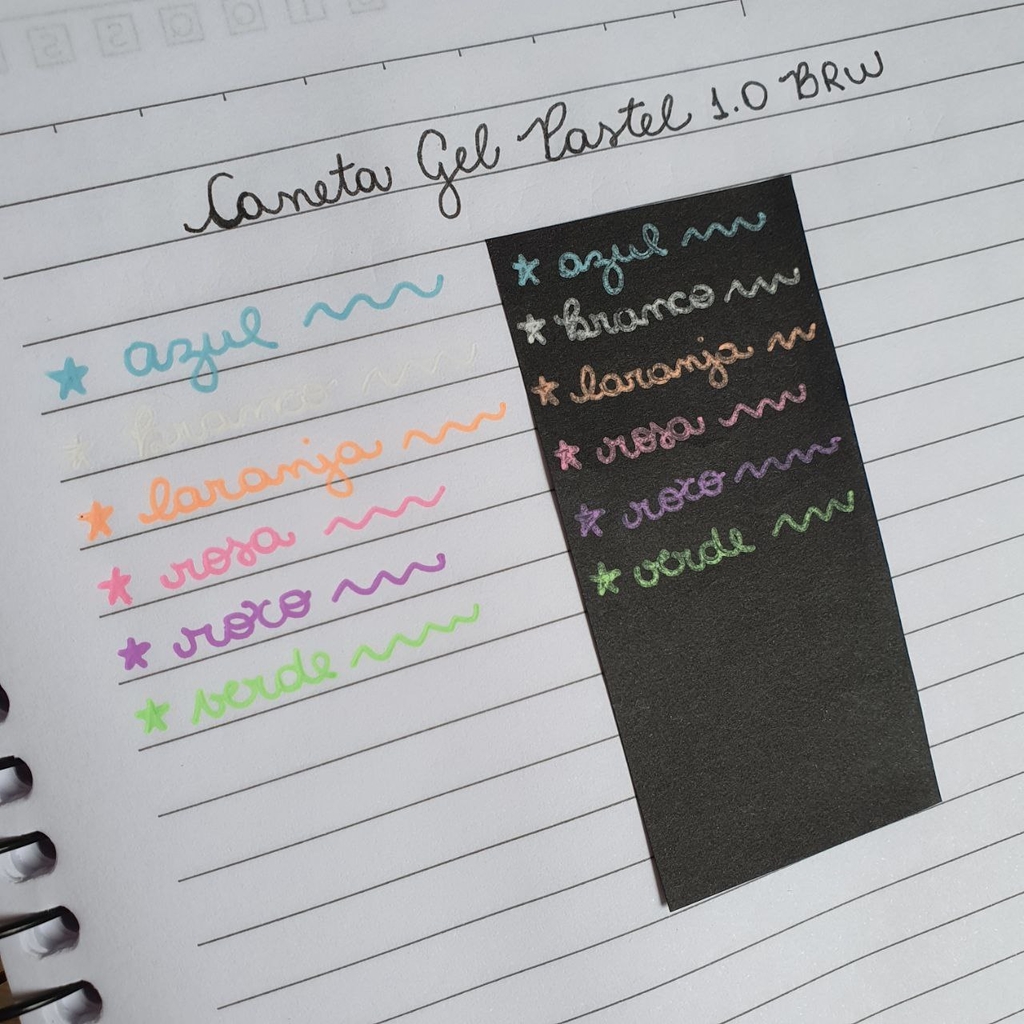 Caneta Gel Pastel 1.0 BRW
azul
branco
laranja
rosa
roxo
verde
azul
branco
laranja
rosa
roxo
verde